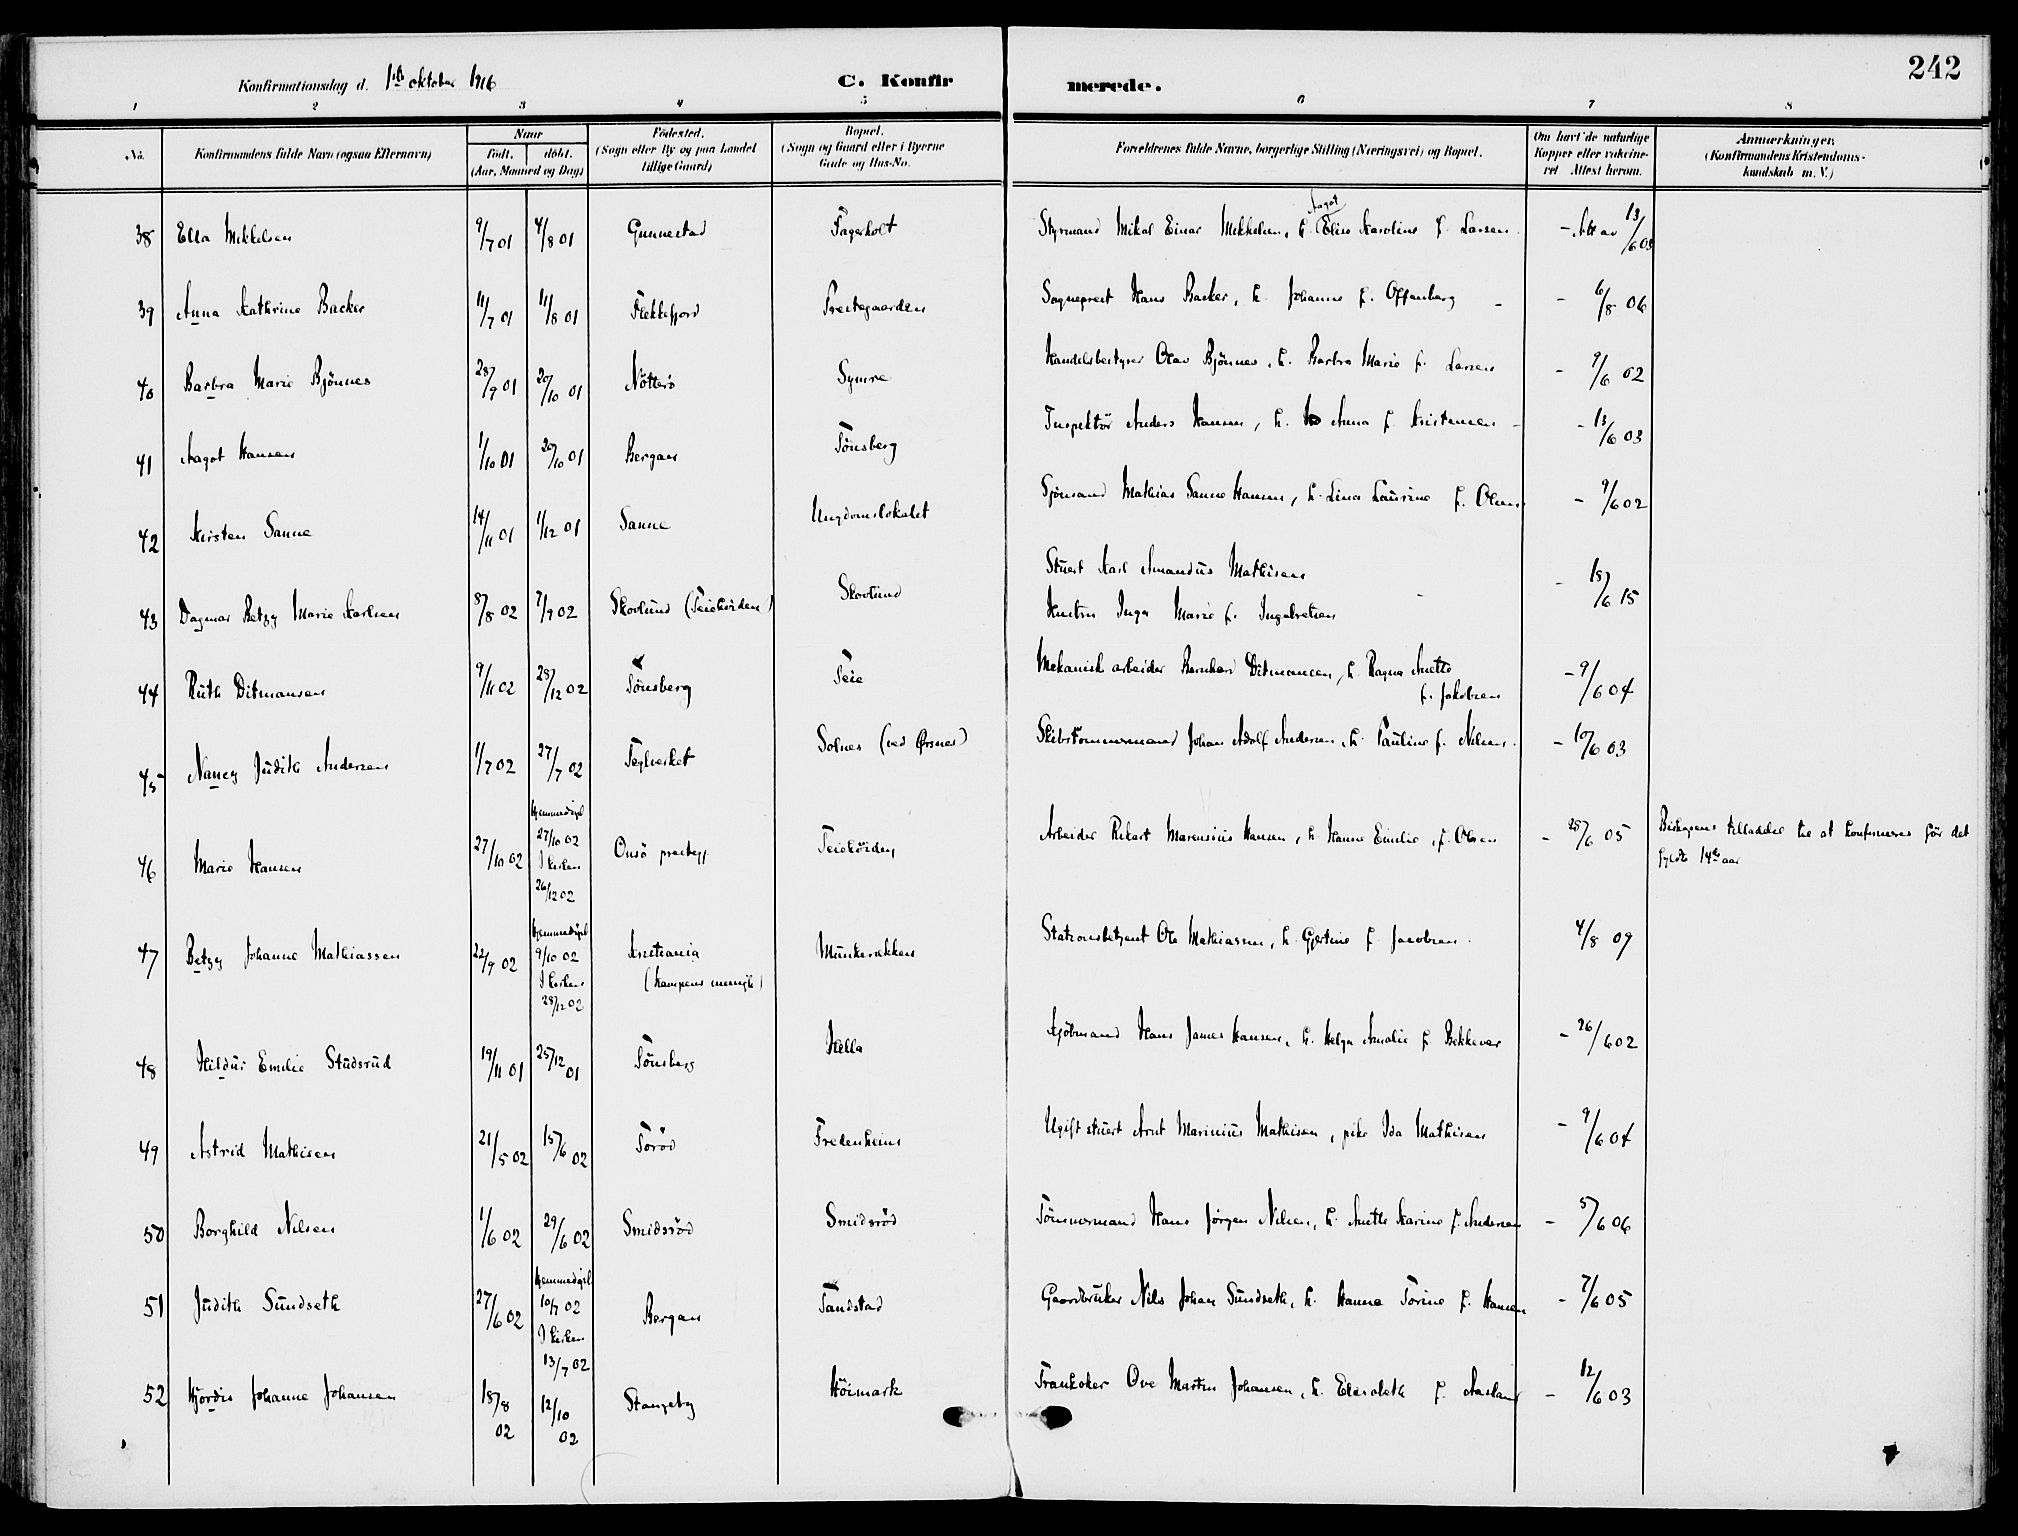 242
Konfirmationsdag d. 1ste oktober 1916
C. Konfirmerede.
1 2 3 4 5 6 7 8
No. Konfirmandens fulde Navn (ogsaa Efternavn) Naar født. døbt. (Aar, Maaned og Dag) Fødested. (Sogn eller By og paa Landet tillige Gaard) Bopæl. (Sogn og Gaard eller i Byerne Gade og Hus-No. Forældrenes fulde Navne, borgerlige Stilling (Næringsvei) og Bopæl. Om havt de naturlige Kopper eller vakcineret Attest herom. Anmærkninger. (Konfirmandens Kristendomskundskab m. V.)
Aagot
38 Ella Mikkelsen 9/7 01 4/8 01 Gunnestad Fagerholt Styrmand Mikal Einar Mikkelsen, h. Elise Karoline f. Larsen - Att av 13/6 03
39 Anna Kathrine Backer 11/7 01 11/8 01 Flekkefjord Prestegaarden Sogneprest Hans Backer, h. Johanne f. Offenberg - - 6/8 06
40 Barbra Marie Bjönnes 28/9 01 20/10 01 Nötterö Symre Handelsbestyrer Olav Bjönnes, h. Barbra Marie f. Larsen - 9/6 02
41 Aagot Hansen 1/10 01 20/10 01 Bergan Tönsberg Inspektör Anders Hansen, h. Anna f. Kristensen - - 13/6 03
42 Kirsten Sanne 14/11 01 1/12 01 Sanne Ungdomslokalet Sjömand Mathias Sanne Hansen, h. Lina Laurine f. Olsen - 9/6 02
43 Dagmar Betzy Marie Karlsen 8/8 02 7/9 02 Skovlund (Teiehöiden) Skovlund Stuert Karl Amandus Mathisen
Hustru Inga Marie f. Ingebretsen - 18/6 15
44 Ruth Ditmansen 9/11 02 28/12 02 Tönsberg Teie Mekanisk arbeider Bernhard Ditmansen, h. Ragna Anette
f. Jakobsen - 9/6 04
45 Nancy Judith Andersen 1/7 02 27/7 02 Teglverket Solnes (ved Ørsnes) Skibstömmermand Johan Adolf Andersen, h. Pauline f. Nilsen. - 10/6 03
46 Marie Hansen 27/10 02 Hjemmedöpt
27/10 02
I kirken
26/12 02 Onsö prestegj. Teiehöiden Arbeider Rikart Marensius Hansen, h. Hanna Emilie, f. Olsen - 28/6 05 Biskopens tilladelse til at konfirmeres för det
fyldte 14de aar
47 Betzy Johanne Mathiassen 22/9 02 Hjemmedöpt
9/10 02
I kirken
28/12 02 Kristiania
(Kampens menigh) Munkerekken Stationsbetjent Ole Mathiassen, h. Gjertine f. Jacobsen. 4/8 09
48 Hildur Emilie Studsrud 19/11 01 25/12 01 Tönsberg Hella Kjöbmand Hans James Hansen, h. Helga Amalie f. Bekkevar - 26/6 02
49 Astrid Mathisen 21/5 02 15/6 02 Töröd Fredenheim Ugift stuert Arnt Marinius Mathisen, pike Ida Mathisen - 9/6 04
50 Borghild Nilsen 1/6 02 29/6 02 Smidsröd Smidsröd Tömmermand Hans Jörgen Nilsen, h. Anette Karine f. Andersen - 5/6 06
51 Judith Sundseth 27/6 02 Hjemmedöpt
10/7 02
I kirken
13/7 02 Bergan Tandstad Gaardbruker Nils Johan Sundseth, h. Hanna Torine f. Hansen - 7/6 05
52 Hjördis Johanne Johansen 18/8 02 12/10 02 Stangeby Höimark Trankoker Ove Martin Johansen, h. Elisabeth f. Aasland - 12/6 03